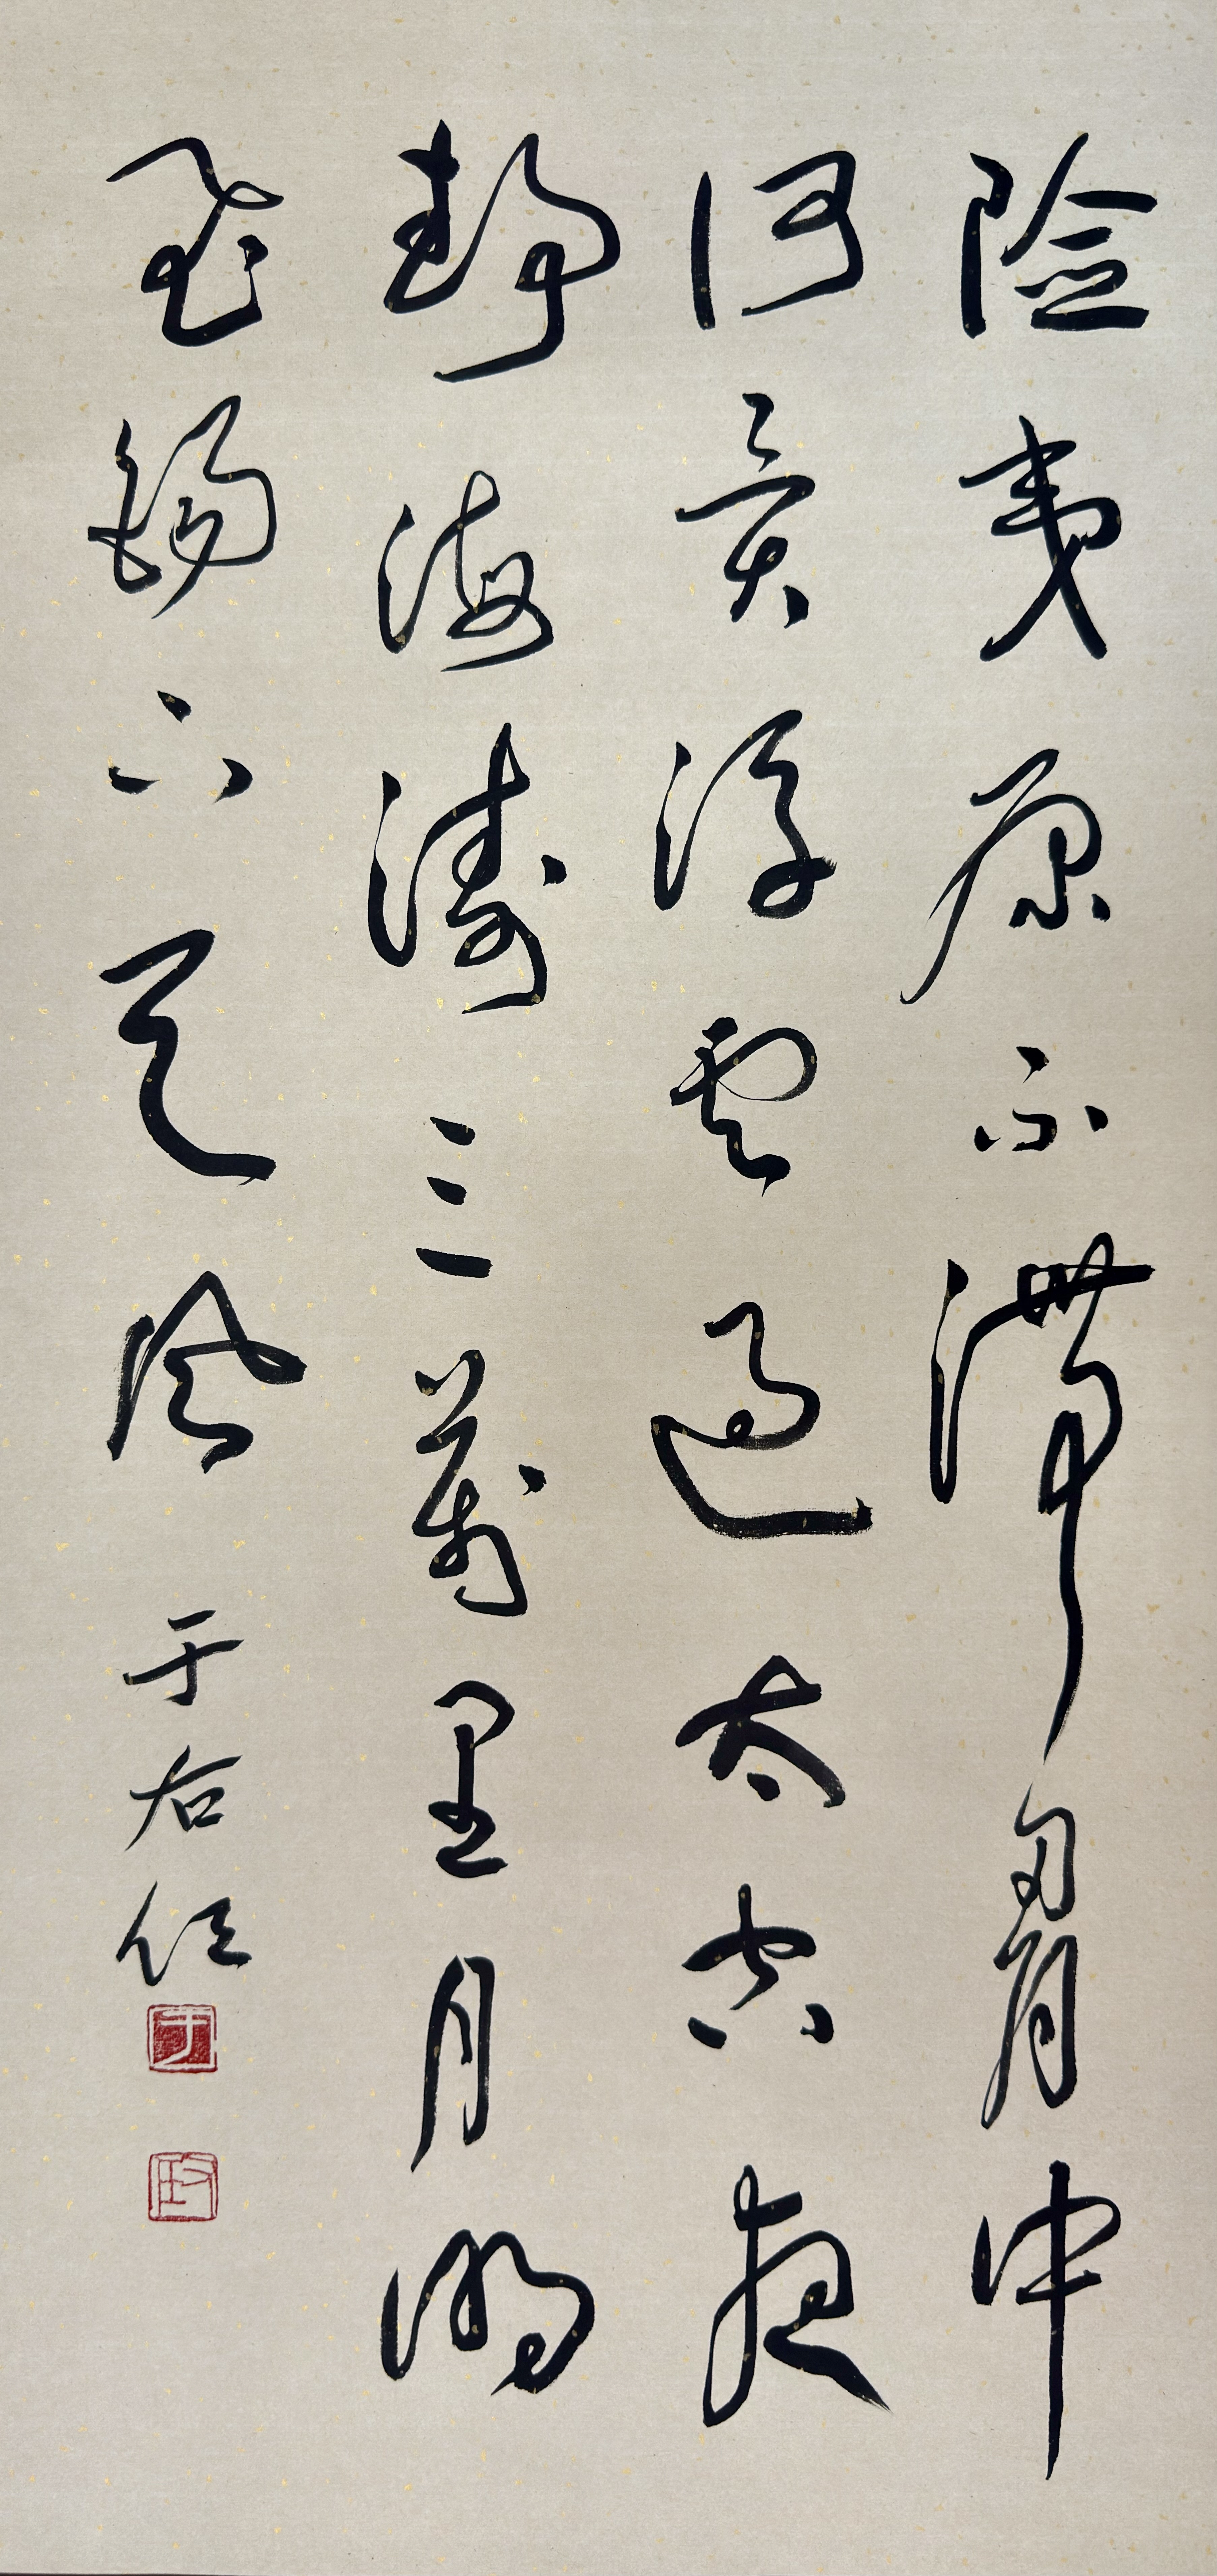 險夷原不滯胷中
何異浮雲過太空夜
靜海濤三萬里月明
飛錫下天風
于右任